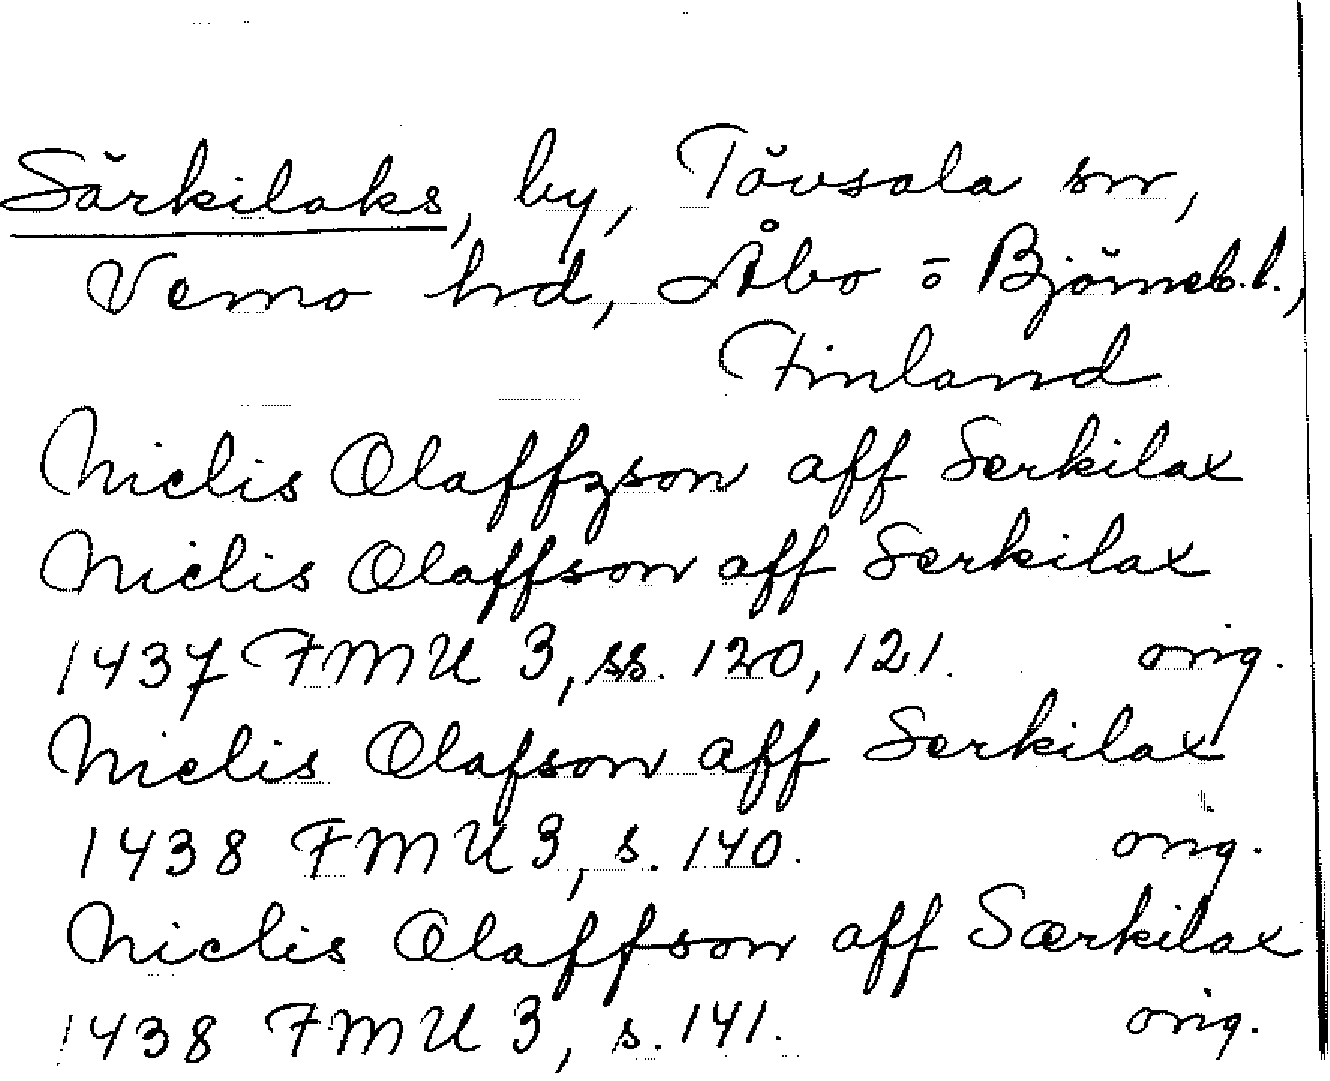 Särkilaks, by, Tövsala sn,
Vemo hrd, Åbo o Björneb.l.,
Finland
Niclis Olaffzson aff Serkilax
Niclis Olaffson aff Serkilax
1437 FMU 3, ss. 120, 121. orig.
Niclis Olafson aff Serkilax
1438 FMU 3, s. 140. orig.
Niclis Olaffson aff Særkilax
1438 FMU 3, s. 141. orig.